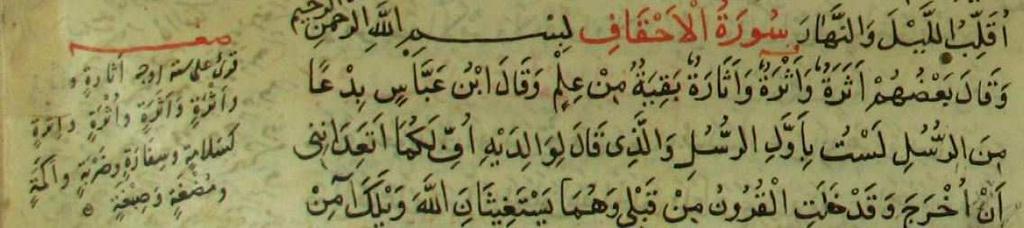 أُقَلِّبُ اللَّيْلَ وَالنَّهَارَ سُورَةُ الْأَحْقَافِ بِسْمِ اللَّهِ الرَّحْمَنِ الرَّحِيمِ
وَقَالَ بَعْضُهُمْ أَثَرَةٌ وَأُثْرَةٌ وَأَثَارَةٌ بَقِيَّةٌ مِنْ عِلْمٍ وَقَالَ ابْنُ عَبَّاسٍ بِدْعًا
مِنَ الرُّسُلِ لَسْتُ بِأَوَّلِ الرُّسُلِ وَالَّذِي قَالَ لِوَالِدَيْهِ أُفٍّ لَكُمَا أَتَعِدَانِنِي
أَنْ أُخْرَجَ وَقَدْ خَلَتِ الْقُرُونُ مِنْ قَبْلِي وَهُمَا يَسْتَغِيثَانِ اللَّهَ وَيْلَكَ آمِنْ
قرئ على ستة اوجه أثارةٍ و
وأثْرةٍ وأثَرةٍ وأُثرةٍ وإثرةٍ
وسفارةٍ وضربةٍ وأكمةٍ
ومضغةٍ وصبغةٍ